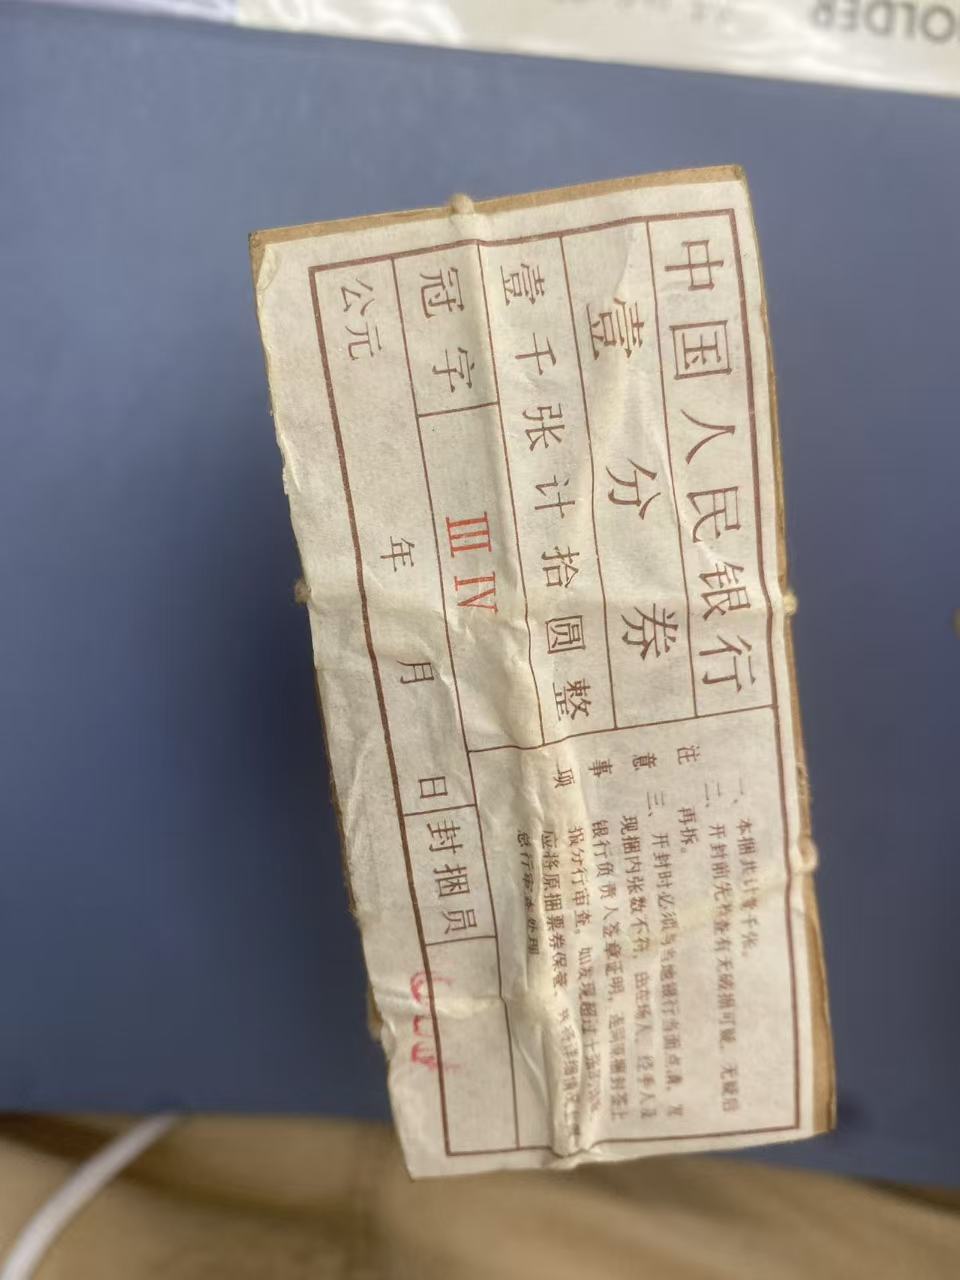 OLDER
中国人民银行
壹分券
壹千张计拾圆整
冠字 III IV
公元 年 月 日 封捆员
注意事项
一、本捆共计壹千张。
二、开封前先检查有无破捆可疑，无疑后
再拆。
三、开封时必须与当地银行当面点清，发
现捆内张数不符，由在场人、经手人及
银行负责人签章证明，连同原捆封签上
报分行审查。如发现超过十张
应将原捆票券保管，将详细情况
总行 处理